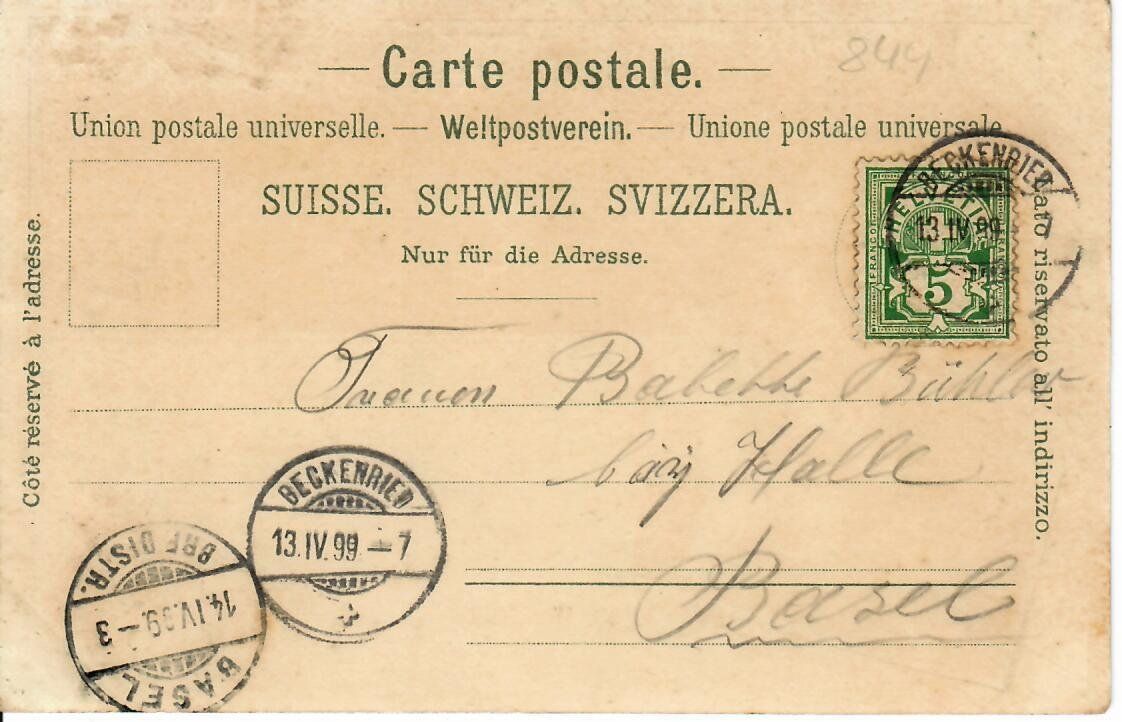 844
— Carte postale. —
Union postale universelle. — Weltpostverein. — Unione postale universale.
SUISSE. SCHWEIZ. SVIZZERA.
Nur für die Adresse.
Côté réservé à l'adresse.
Lato riservato all' indirizzo.
HELVETIA
FRANCO
FRANCO
5
BECKENRIED
13.IV.99
Babette Bühler
Halle
Basel
BECKENRIED
13.IV.99–7
BRF. DISTR.
14.IV.99–3
BASEL